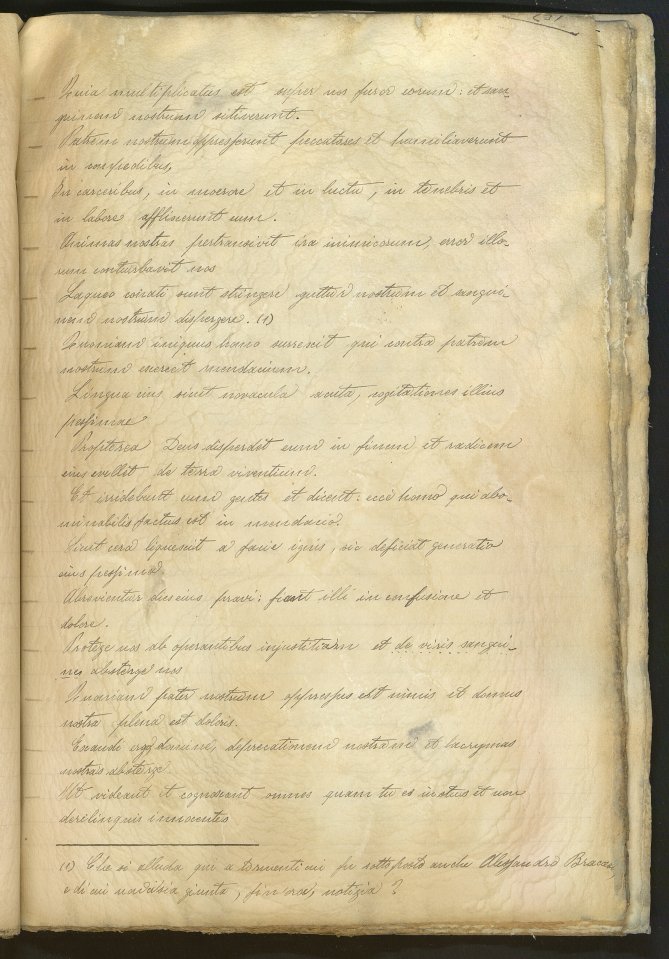 Quia multiplicatus est super nos furor eorum: et san-
guinem nostrum sitiverunt.
Patrem nostrum oppresserunt peccatores et humiliaverunt
in compedibus,
In carceribus, in moerore et in luctu, in tenebris et
in labore afflixerunt eum.
Animas nostras pertransivit ira inimicorum, error illo-
rum conturbavit nos
Laqueo conati sunt stringere guttur nostrum et sangui-
nem nostrum dispergere. (1)
Quoniam iniquus homo surrexit qui contra patrem
nostrum exercit mendacium.
Lingua eius sicut novacula acuta, cogitationes illius
pessimae
Propterea Deus disperdat eum in finem et radicem
eius evellit de terra viventium.
Et irridebunt eum gentes et dicent: ecce homo qui abo-
minabilis factus est in mendacio.
Sicut cera liquescit a facie ignis, sic deficiat generatio
eius pessima
Abrevientur dies eius pravi: fient illi in confusione et
dolore.
Protege nos ab operantibus injustitiam et de viris sangui-
nes absterge nos
Quoniam pater nostrum oppressus est nimis et domus
nostra plena est doloris.
Exaudi ergo domine, deprecationem nostram et lacrymas
nostras absterge.
Ut videant et cognoscant omnes quam tu es iustus et non
derilinquis innocentes
(1) Che si alluda qui a tormenti cui fu sottoposto anche Alessandro
e di cui non ci sia giunta, fin ora, notizia?